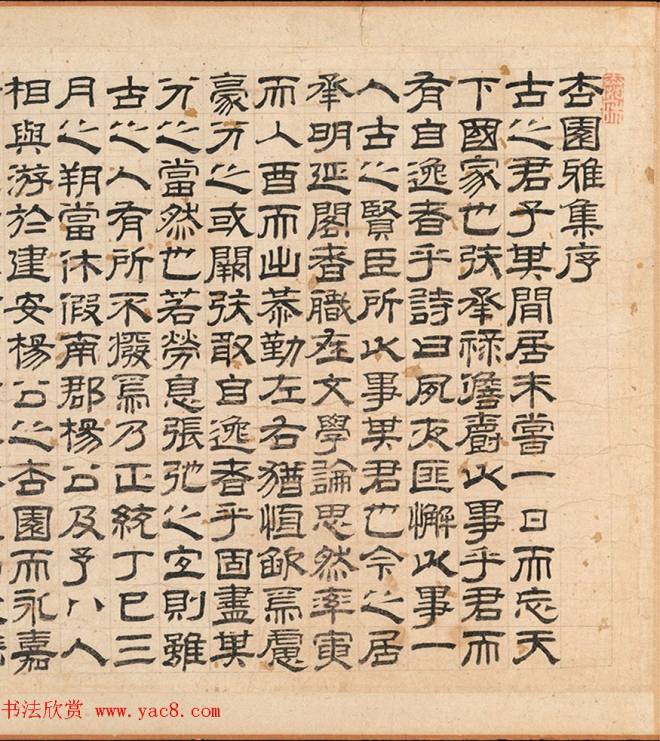 杏園雅集序
古之君子其閒居未嘗一日而忘天
下國家也矧承祿儋爵以事乎君而
有自逸者乎詩曰夙夜匪懈以事一
人古之賢臣所以事其君也今之居
承明延閣者職在文學論思然率寅
而入酉而出恭勤左右猶恆歉焉慮
豪分之或闕矧敢自逸者乎固盡其
分之當然也若勞息張弛之宜則雖
古之人有所不廢焉乃正統丁巳三
月之朔當休假南郡楊公及予八人
相與游於建安楊公之杏園而永嘉
书法欣赏 www.yac8.com